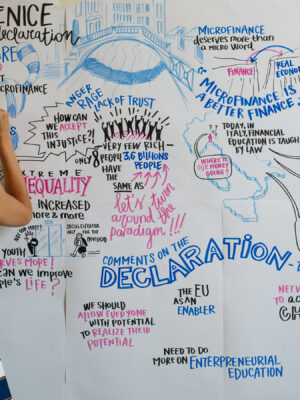 ENICE
Declaration
MICROFINANCE
deserves more than
a micro Word
FINANCE
REAL
"MICROFINANCE IS
A BETTER FINANCE
MICROFINANCE
ANGER
RAGE
LACK OF TRUST
HOW CAN
WE ACCEPT
THIS
INJUSTICE?!
VERY FEW RICH-
ONLY 8 PEOPLE 3.6 BILLIONS
PEOPLE
HAVE
THE
SAME AS
let's turn
around the
paradigm!!!
TODAY, IN
ITALY, FINANCIAL
EDUCATION IS TAUGHT
BY LAW
WHERE IS
OUR MONEY
GOING?
XTREME
EQUALITY
INCREASED
more & more
YOUTH
MORE!
can we improve
LIFE?
COMMENTS ON THE
DECLARATION-
WE SHOULD
ALLOW EVERYONE
WITH POTENTIAL
TO REALIZE THEIR
POTENTIAL
THE EU
AS AN
ENABLER
NEED TO DO
MORE ON ENTERPRENEURIAL
EDUCATION